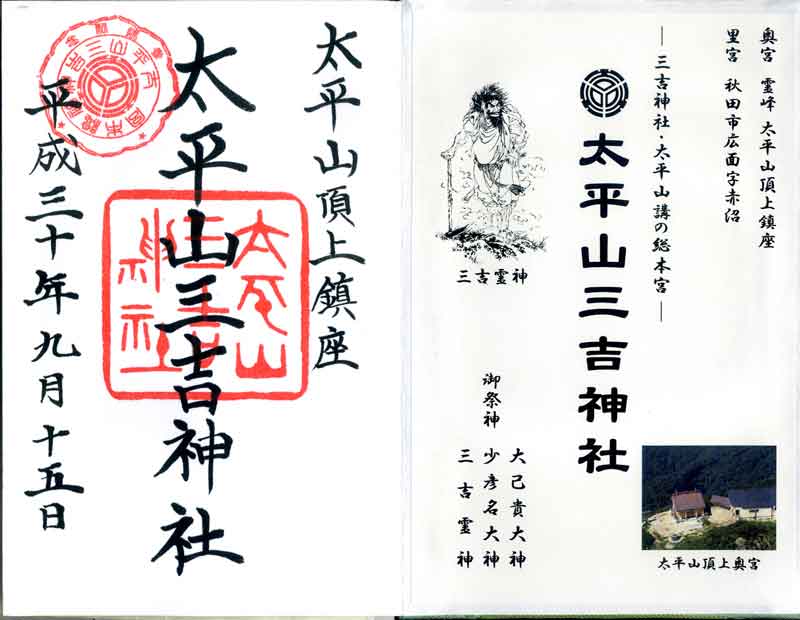 奥宮 霊峰 太平山頂上鎮座
里宮 秋田市広面字赤沼
―三吉神社・太平山講の総本宮―
太平山三吉神社
三吉霊神
御祭神
大己貴大神
少彦名大神
三吉霊神
太平山頂上奥宮
太平山頂上鎮座
太平山三吉神社
平成三十年九月十五日
太平山
三吉
神社